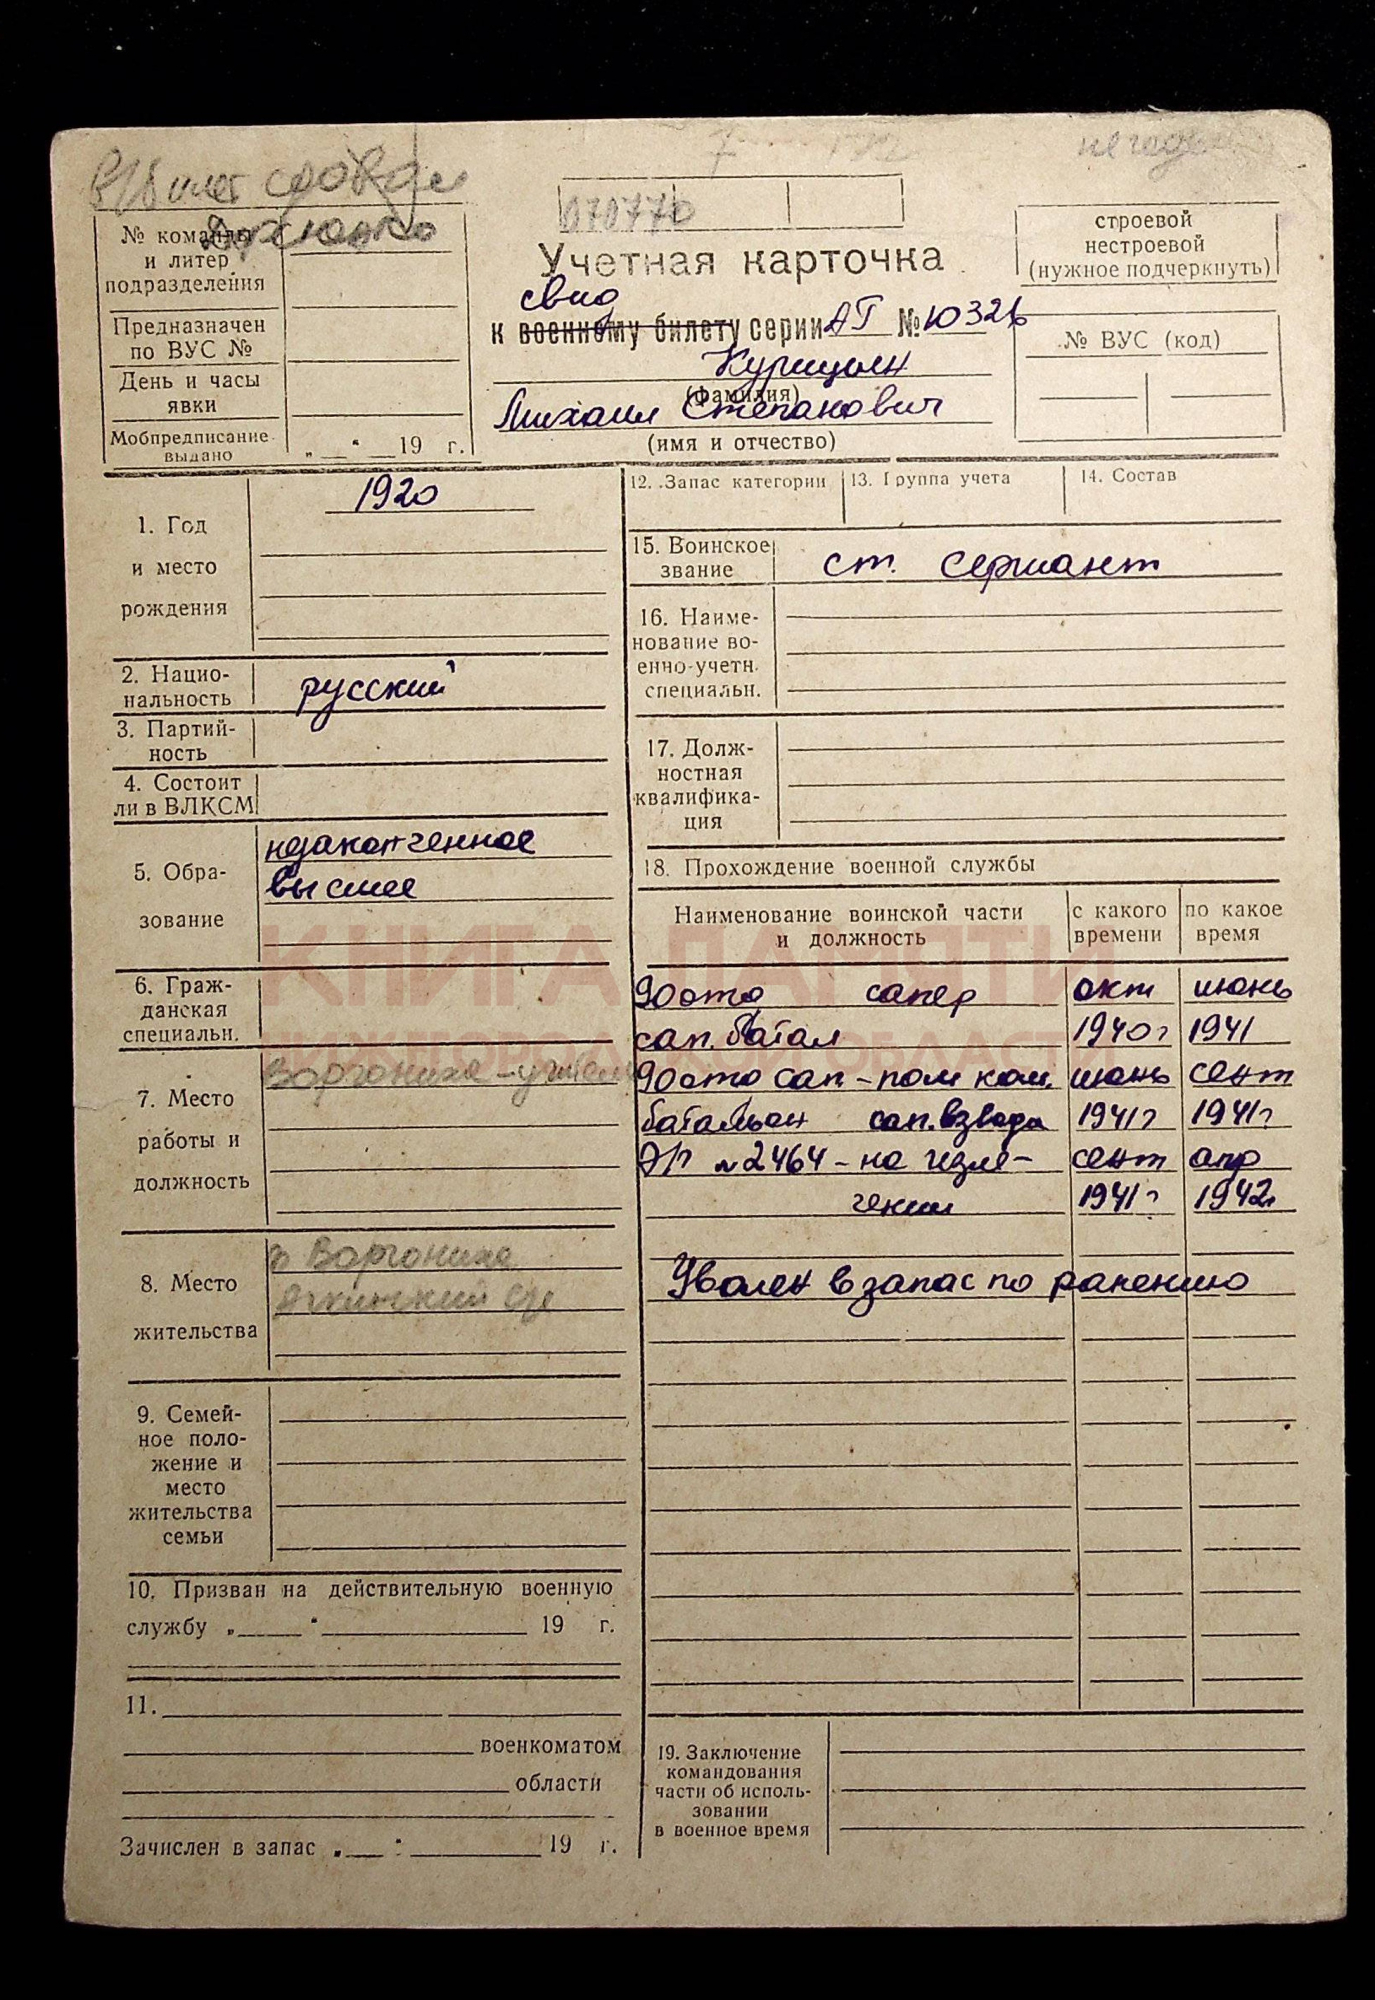 070770
№ команды
и литер
подразделения
Предназначен
по ВУС №
День и часы
явки
Мобпредписание
выдано
„ “ 19 г.
Учетная карточка
свид
к военному билету серии АГ № 10326
Курицын
(фамилия)
Михаил Степанович
(имя и отчество)
строевой
нестроевой
(нужное подчеркнуть)
№ ВУС (код)
1. Год
и место
рождения
1920
2. Нацио-
нальность
русский
3. Партий-
ность
4. Состоит
ли в ВЛКСМ
5. Обра-
зование
незаконченное
высшее
6. Граж-
данская
специальн.
7. Место
работы и
должность
Ворониха - учитель
8. Место
жительства
Ворониха
9. Семей-
ное поло-
жение и
место
жительства
семьи
10. Призван на действительную военную
службу „ “ 19 г.
11.
военкоматом
области
Зачислен в запас „ “ 19 г.
12. Запас категории
13. Группа учета
14. Состав
15. Воинское
звание
ст. сержант
16. Наиме-
нование во-
енно-учетн.
специальн.
17. Долж-
ностная
квалифика-
ция
18. Прохождение военной службы
Наименование воинской части
и должность
с какого
времени
по какое
время
90 отд сапер окт июнь
сап. батал 1940г 1941
90 отд сап - пом ком. июнь сент
батальон сап. взвода 1941г 1941г
ЭГ №2464 - на изле- сент апр
чении 1941г 1942г
Уволен в запас по ранению
19. Заключение
командования
части об исполь-
зовании
в военное время
КНИГА ПАМЯТИ
НИЖЕГОРОДСКОЙ ОБЛАСТИ